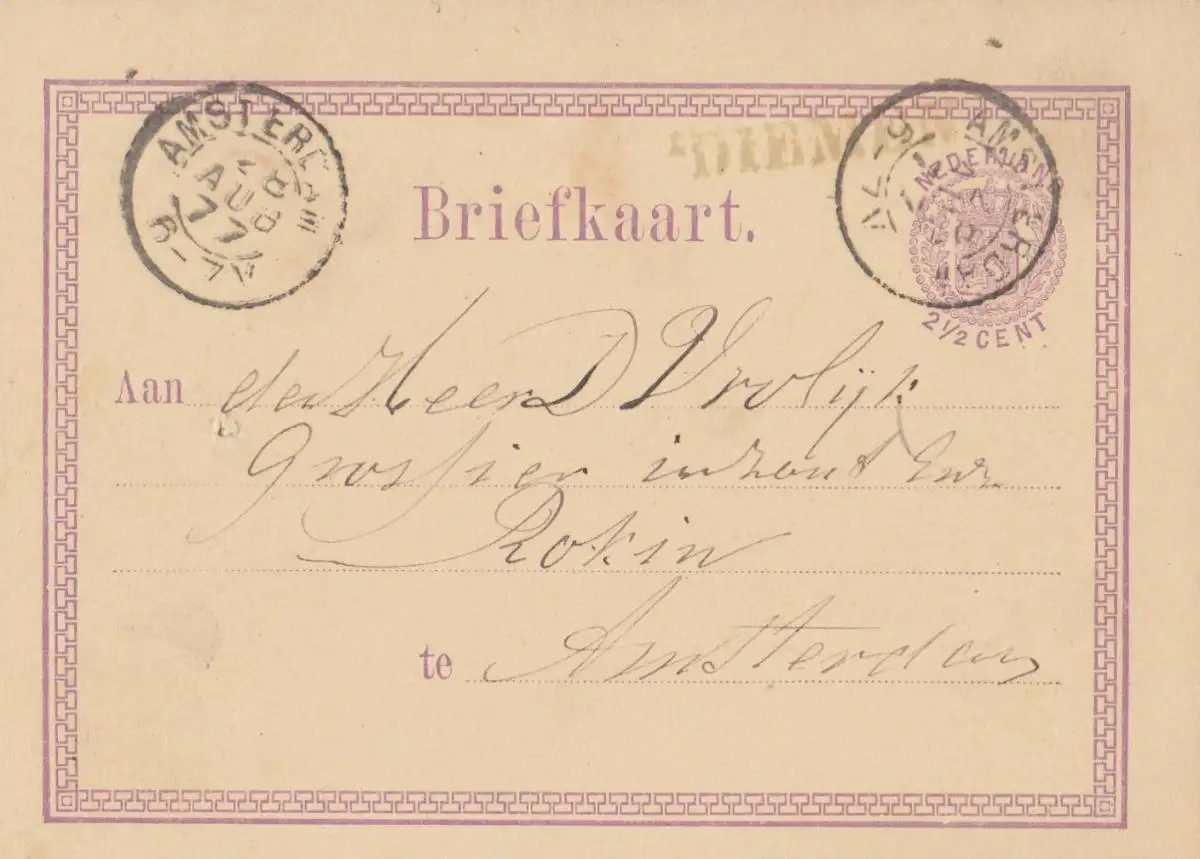 AMSTERDAM
18
AUG
77
6-7V
DIEMEN
AMSTERDAM
NEDERLAND
2½ CENT
Briefkaart.
Aan den Heer D Vrolijk
Grossier in zout Enz
Rokin
te Amsterdam